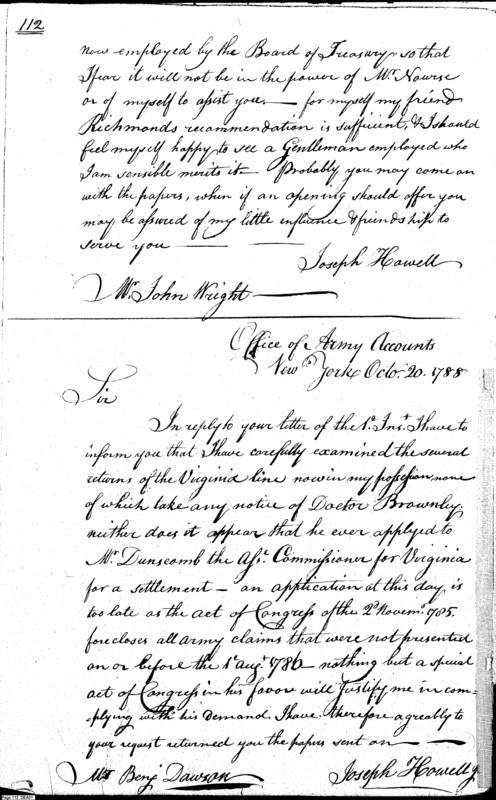 112
now employed by the Board of Treasury so that
I fear it will not be in the power of Mr. Nourse
or of myself to assist you. — for myself my friend
Richmonds recommendation is sufficient, & I should
feel myself happy to see a Gentleman employed who
I am sensible merits it — Probably you may come on
with the papers, when if an opening should offer you
may be assured of my little influence & friendship to
serve you —
Joseph Howell
Mr. John Wright —
Office of Army Accounts
New York Octo. 20. 1788
Sir
In reply to your letter of the 1st. Inst. I have to
inform you that I have carefully examined the several
returns of the Virginia line now in my possession none
of which take any notice of Doctor Brownley
neither does it appear that he ever applyed to
Mr. Dunscomb the Asst. Commissioner for Virginia
for a settlement — an application at this day is
too late as the act of Congress of the 2d. Novemr. 1785.
forecloses all army claims that were not presented
on or before the 1st. Augt. 1786 — nothing but a special
act of Congress in his favor will justify me in com-
-plying with his demand. I have therefore agreably to
your request returned you the papers sent on —
Mr. Benj Dawson
Joseph Howell Jr